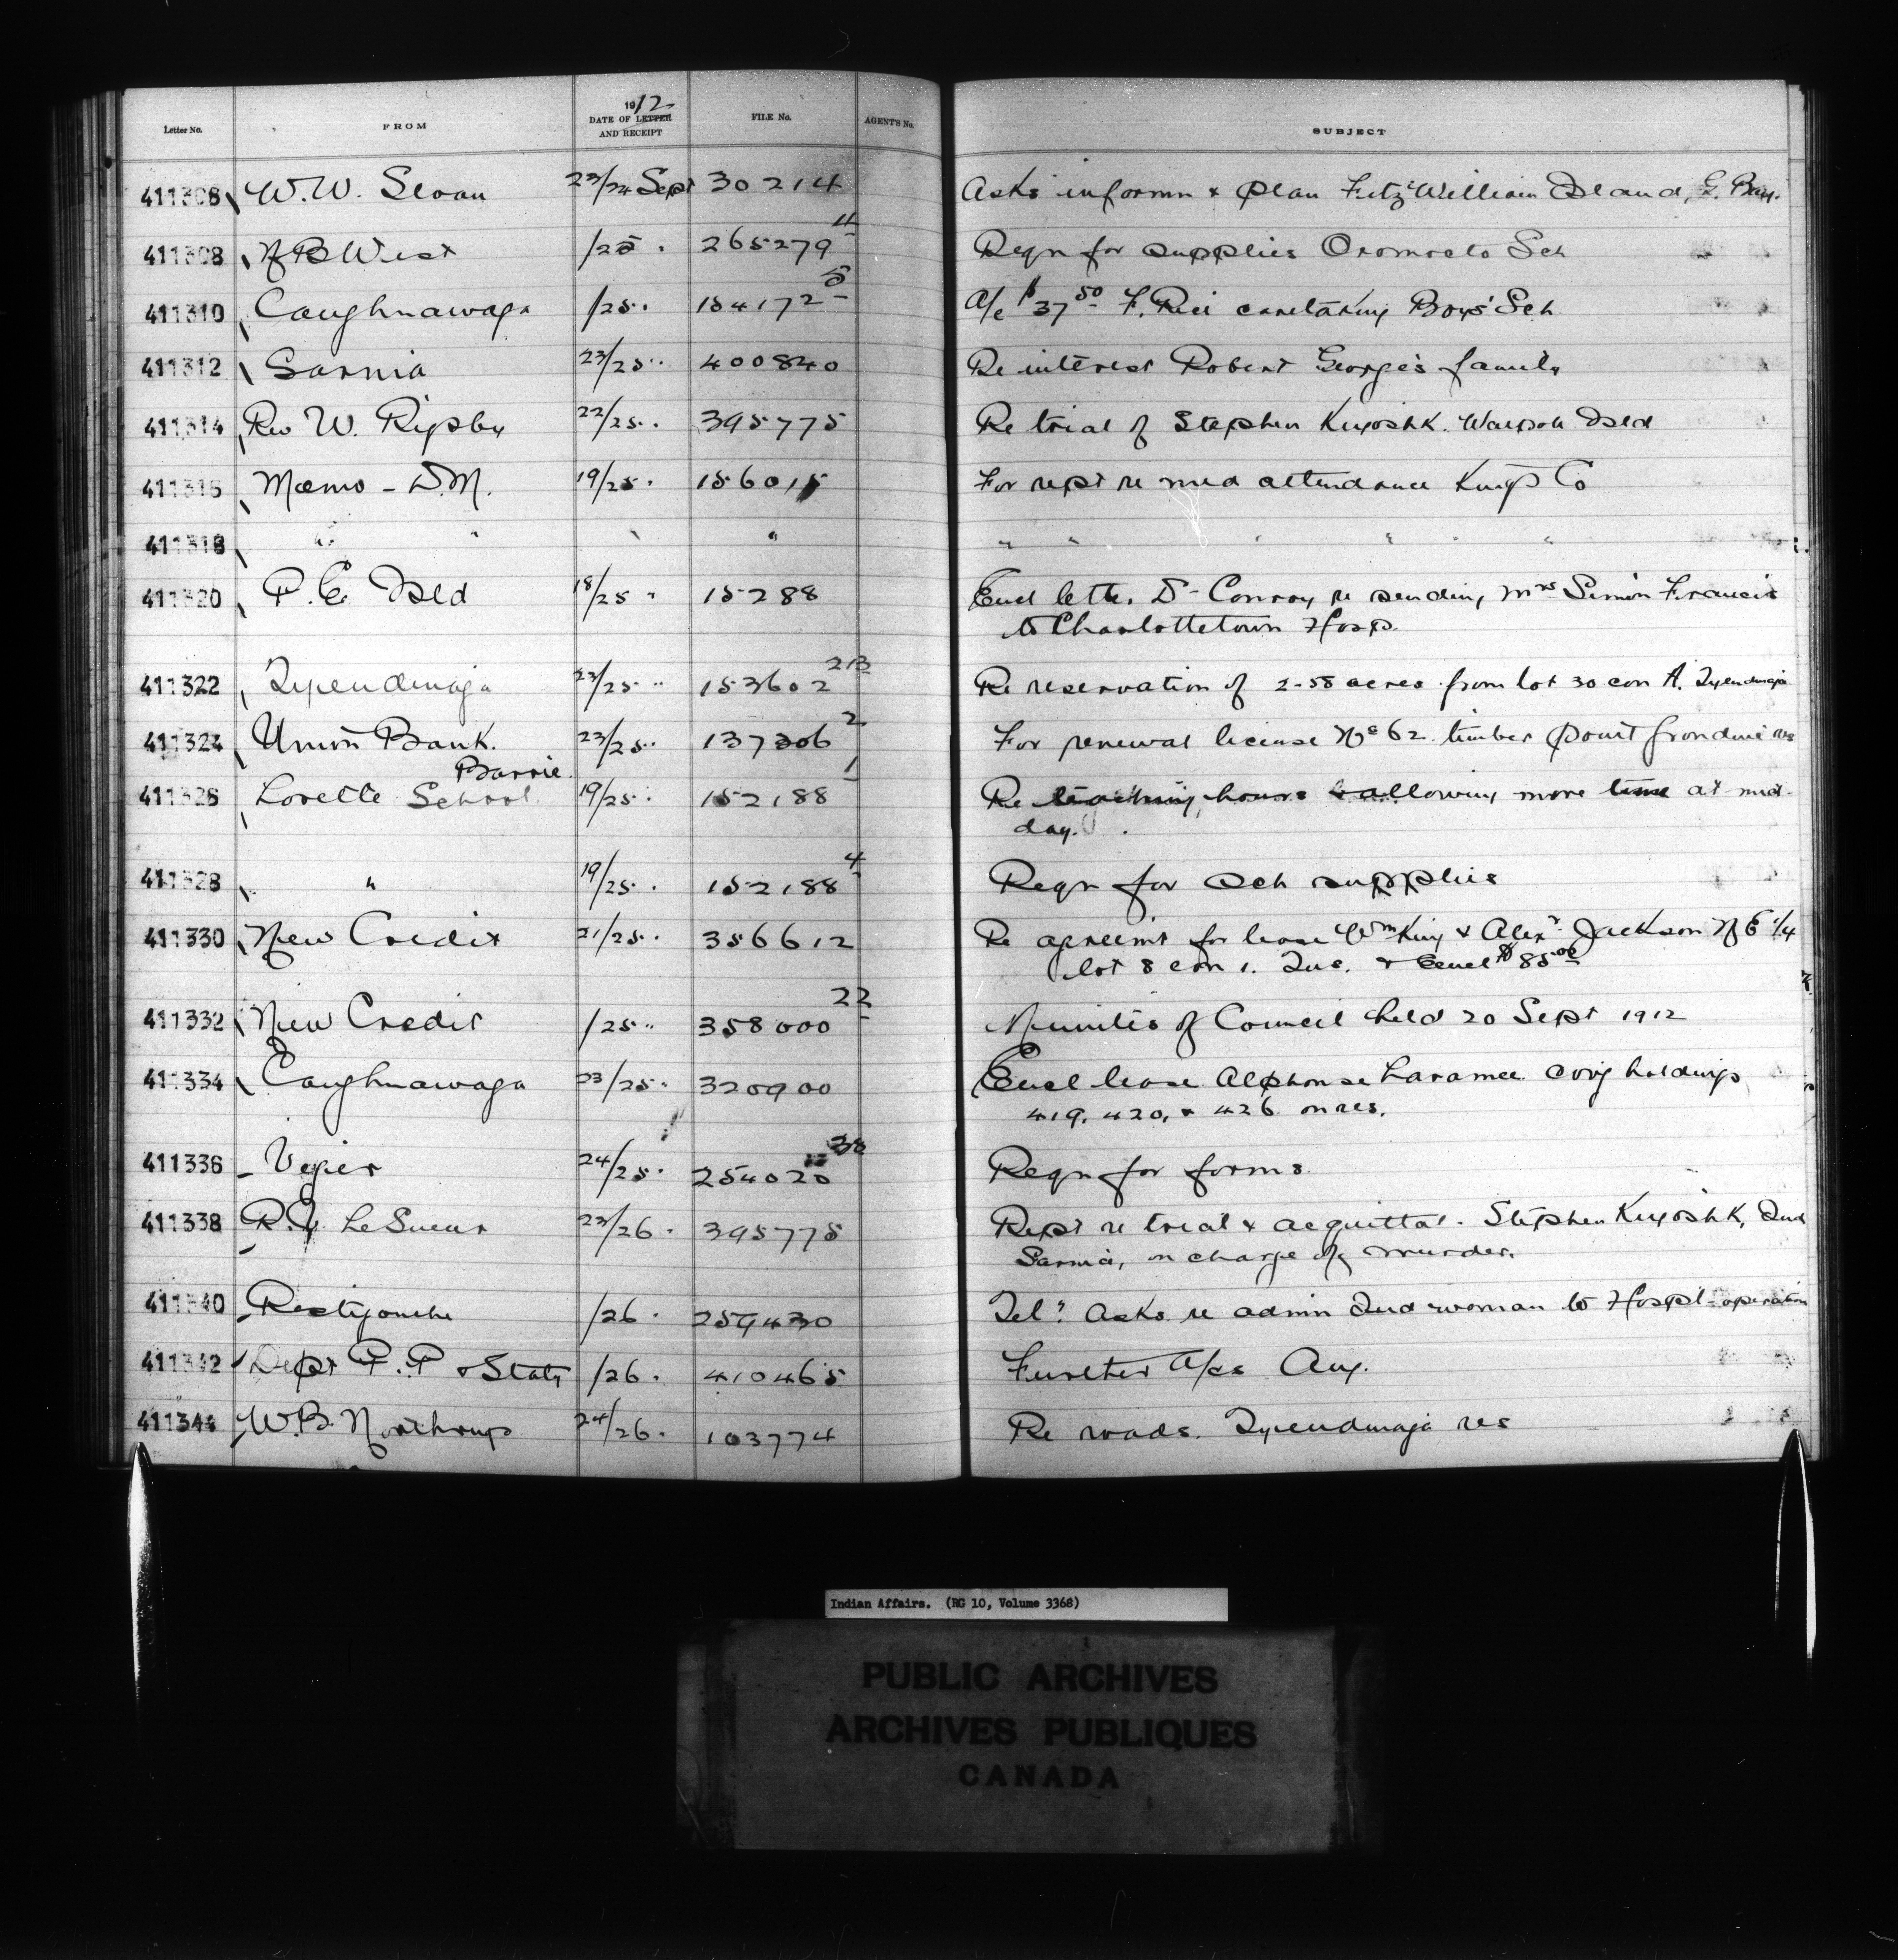 Letter No. FROM 1912 DATE OF LETTER AND RECEIPT FILE No. AGENT'S No. SUBJECT
411306 W.W. Sloan 23/24 Sept 30214 Asks informn & plan FitzWilliam Island, G. Bay.
411308 N B West /25 . 265279 4 Reqn for supplies Oromocto Sch
411310 Caughnawaga /25 . 154172 5 A/c $37 50 F. Rice caretaking Boys' Sch
411312 Sarnia 23/25 " 400840 Re interest Robert George's family
411314 Rev W. Rigsby 22/25 . 395775 Re trial of Stephen Kiyoshk. Walpole Isld
411316 Memo - D.M. 19/25 . 156015 For rept re med attendance Kings Co
411318 " " " " " " " " " "
411320 P. E. Isld 18/25 " 15288 Encl letter Dr Conroy re sending Mrs Simon Francis
to Charlottetown Hosp.
411322 Tyendinaga 23/25 " 153602 213 Re reservation of 2-58 acres from lot 30 con A. Tyendinaga
411324 Union Bank. 23/25 " 137306 2 For renewal license No 62 timber Point Grondine res
Barrie
411326 Lorette School 19/25 . 152188 1 Re teaching hours & allowing more time at mid-
day.
411328 " 19/25 . 152188 4 Reqn for sch supplies
411330 New Credit 21/25 . 356612 Re agreemt for lease Wm King & Alexr Jackson N E 1/4
lot 8 con 1. Tus. & Encl $85.00
411332 New Credit /25 " 358000 22 Minutes of Council held 20 Sept 1912
411334 Caughnawaga 23/25 " 320900 Encl lease Alphonse Laramee covg holdings
419, 420, & 426 on res.
411336 Viger 24/25 . 254020 38 Reqn for forms.
411338 R.V. LeSueur 23/26 . 395775 Rept re trial & acquittal - Stephen Kiyoshk, Ind
Sarnia, on charge of murder.
411340 Restigouche /26 . 259430 Tel: Asks re admn Ind woman to Hospl - operation
411342 Dept P. P & Staty /26 . 410465 Further A/cs Aug.
411344 W.B. Northrup 24/26 . 103774 Re roads. Tyendinaga res
Indian Affairs. (RG 10, Volume 3368)
PUBLIC ARCHIVES
ARCHIVES PUBLIQUES
CANADA